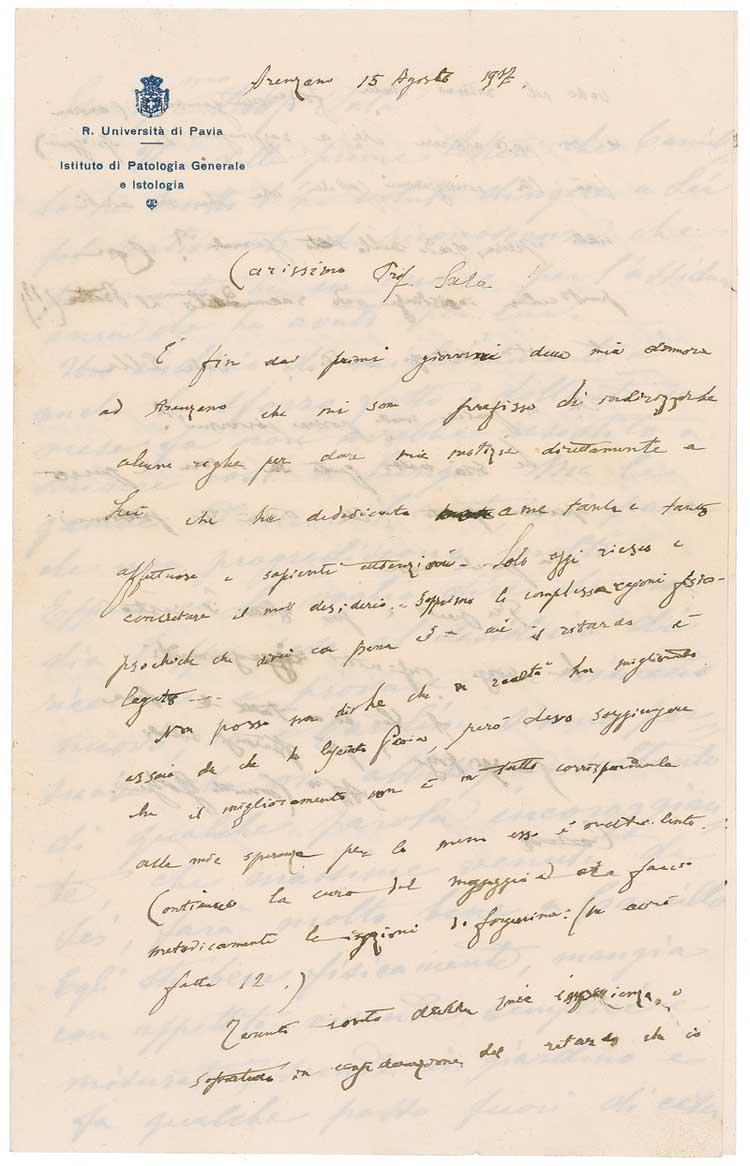 Arenzano 15 Agosto 1907.
R. Università di Pavia
Istituto di Patologia Generale
e Istologia
Carissimo Prof. Sala
È fin dai primi giorni della mia dimora
ad Arenzano che mi son prefisso di indirizzarle
alcune righe per dare mie notizie direttamente a
Lei che ha dedicato a me tante e tanto
affettuose e sapienti attenzioni. Solo oggi riesco a
concretare il mio desiderio. le complesse ragioni fisico-
psichiche che con pena a cui il ritardo è
legato
Non posso non dirle che in realtà ho migliorato
assai da che ho lasciato Pavia, però devo soggiungere
che il miglioramento non è in tutto corrispondente
alle mie speranze per lo meno esso è molto lento.
Continuo la cura del massaggio ed ora faccio
metodicamente le iniezioni di (ne avrò
fatte 12.)
conto della mia e
sopratutto in considerazione del ritardo che io